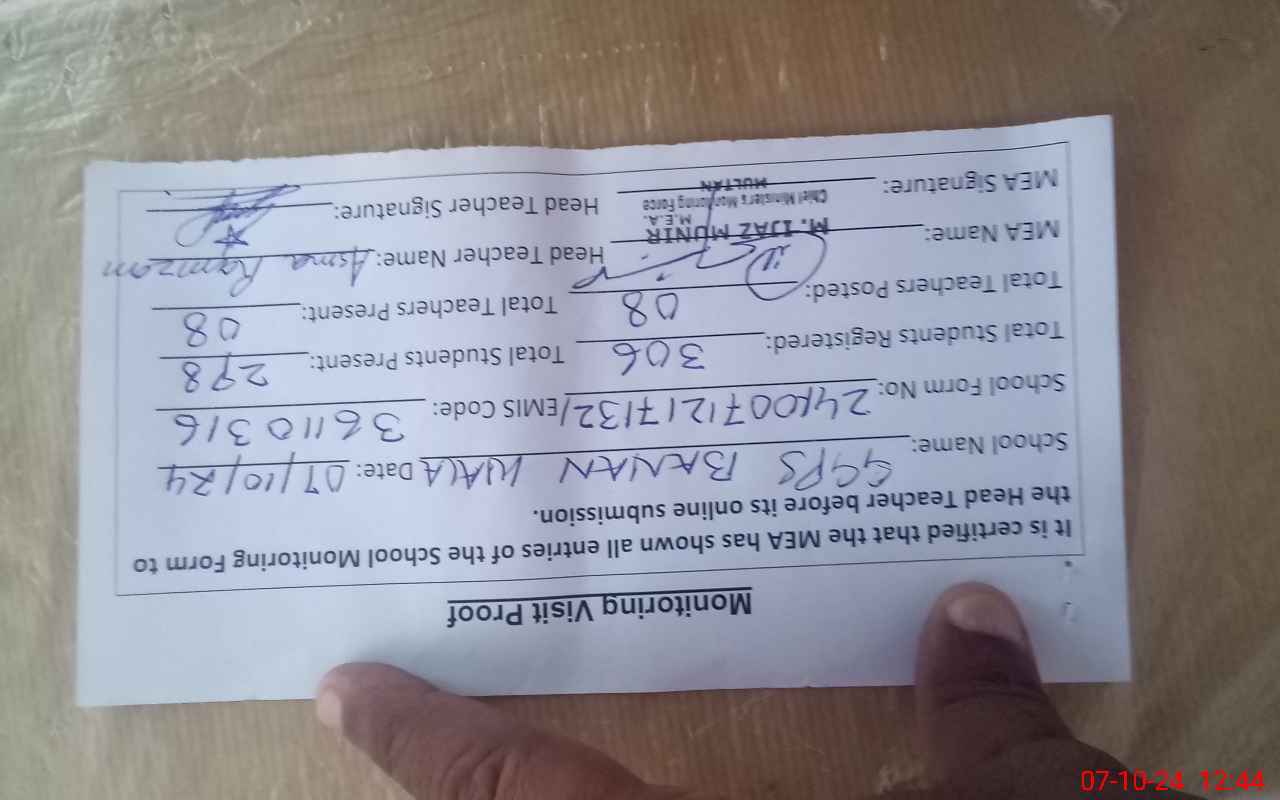 Monitoring Visit Proof
It is certified that the MEA has shown all entries of the School Monitoring Form to
the Head Teacher before its online submission.
School Name: GGPS BANAN WALA Date: 07/10/24
School Form No: 2410071217132/ EMIS Code: 36110316
Total Students Registered: 306 Total Students Present: 298
Total Teachers Posted: 08 Total Teachers Present: 08
MEA Name: M. IJAZ MUNIR Head Teacher Name: Asma Ramzan
M.E.A.
Chief Minister's Monitoring Force
MULTAN
MEA Signature: Head Teacher Signature:
07-10-24 12:44